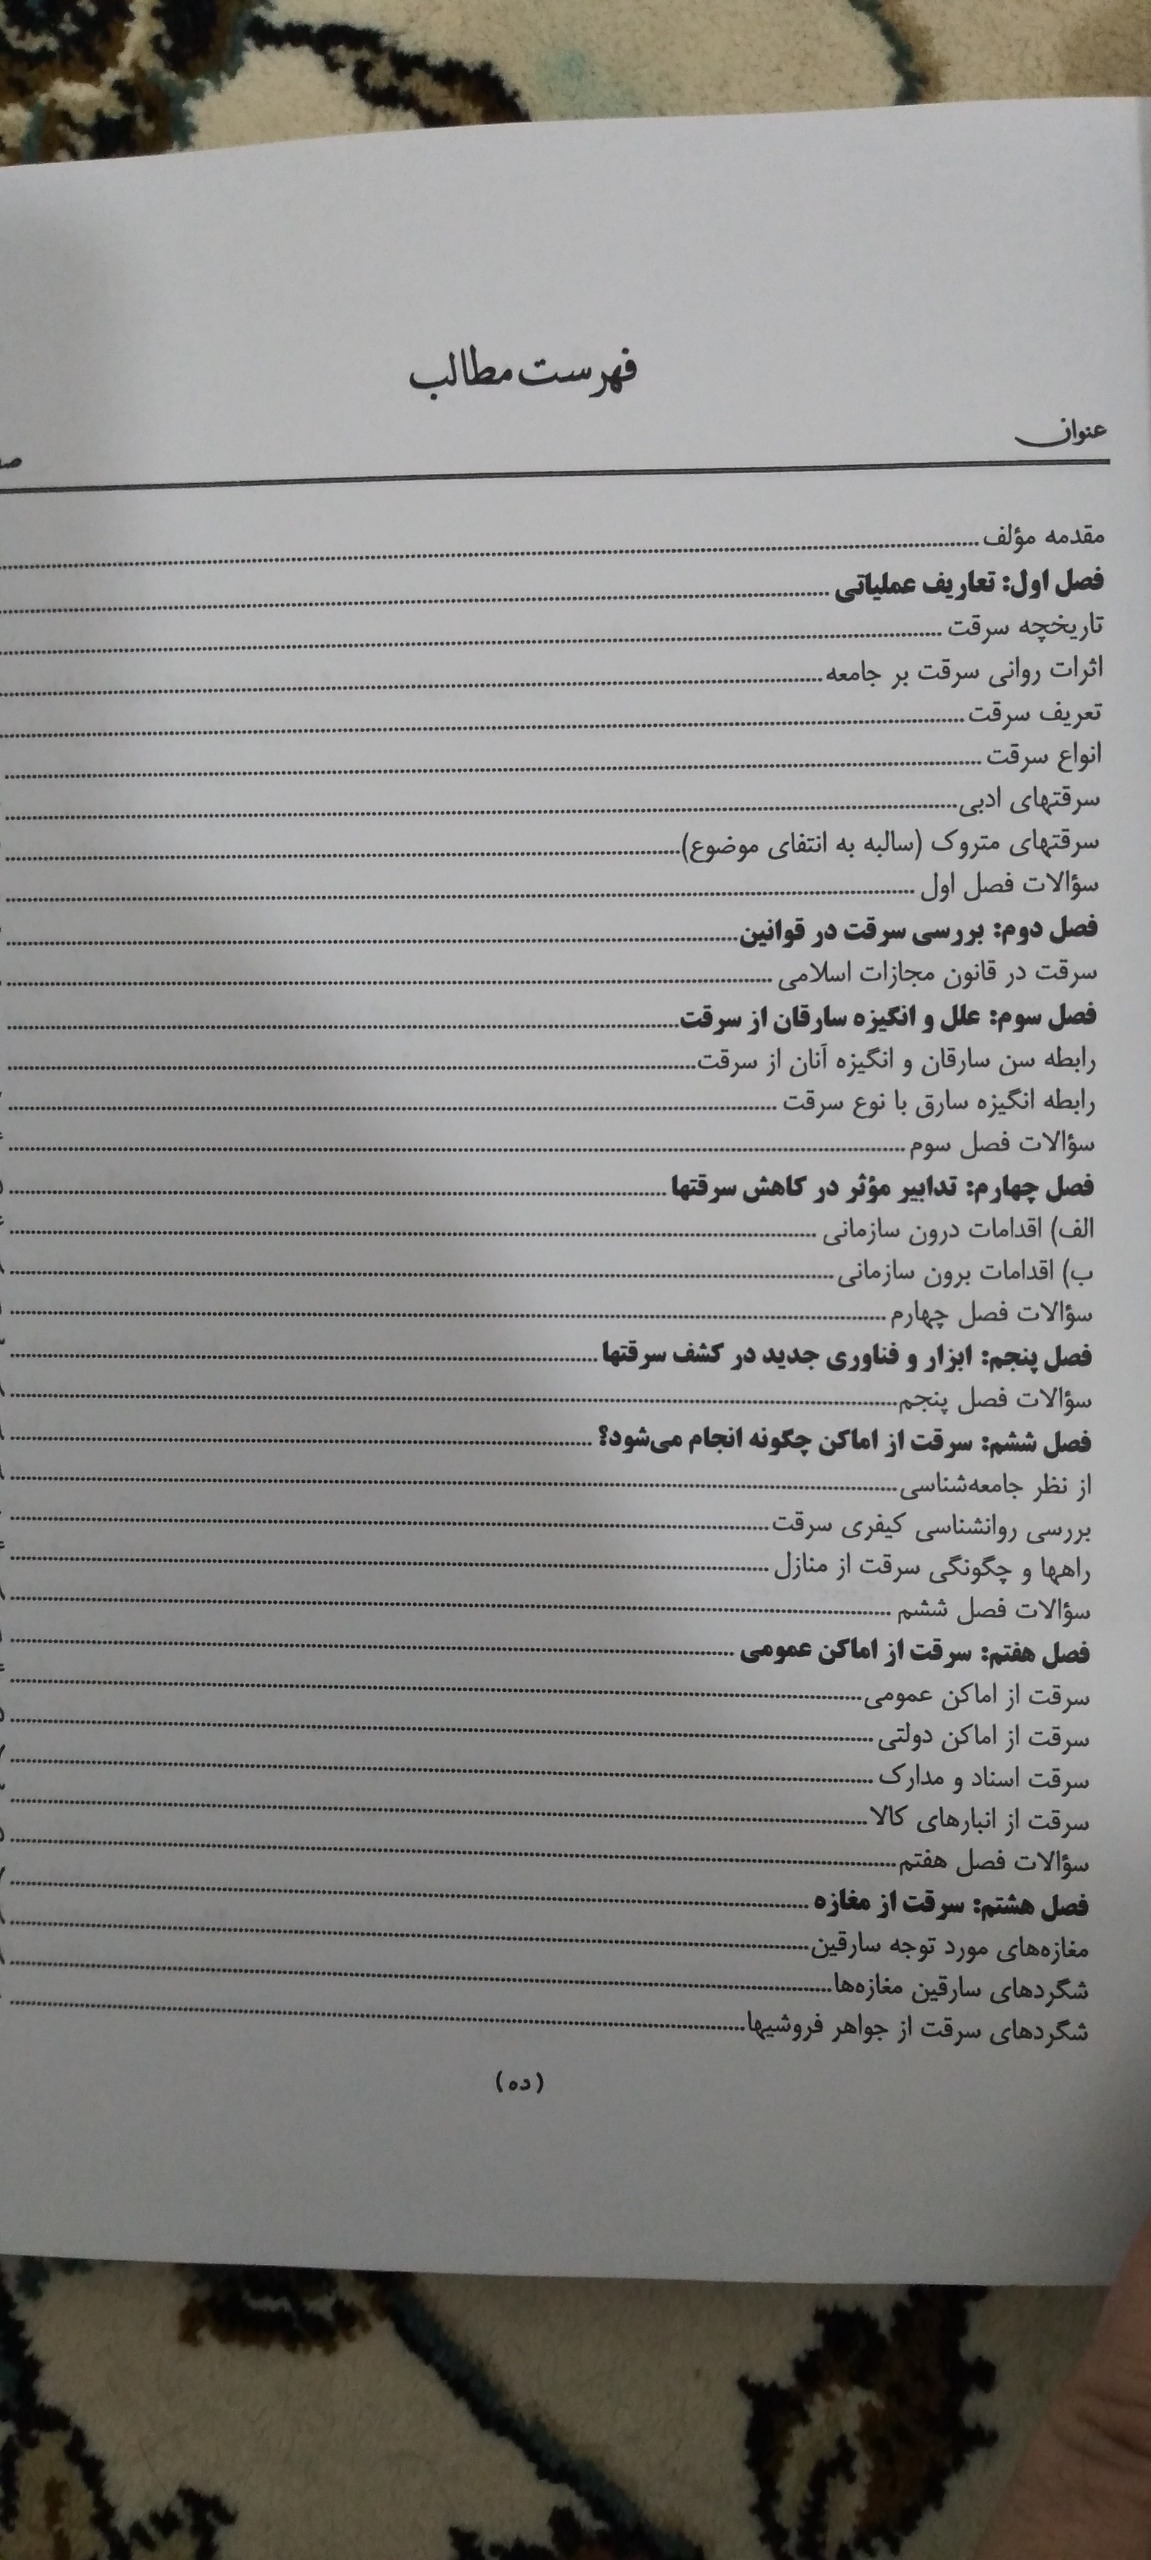 فهرست مطالب
عنوان
مقدمه مؤلف
فصل اول: تعاریف عملیاتی
تاریخچه سرقت
اثرات روانی سرقت بر جامعه
تعریف سرقت
انواع سرقت
سرقتهای ادبی
سرقتهای متروک (سالبه به انتفای موضوع)
سؤالات فصل اول
فصل دوم: بررسی سرقت در قوانین
سرقت در قانون مجازات اسلامی
فصل سوم: علل و انگیزه سارقان از سرقت
رابطه سن سارقان و انگیزه آنان از سرقت
رابطه انگیزه سارق با نوع سرقت
سؤالات فصل سوم
فصل چهارم: تدابیر مؤثر در کاهش سرقتها
الف) اقدامات درون سازمانی
ب) اقدامات برون سازمانی
سؤالات فصل چهارم
فصل پنجم: ابزار و فناوری جدید در کشف سرقتها
سؤالات فصل پنجم
فصل ششم: سرقت از اماکن چگونه انجام می‌شود؟
از نظر جامعه‌شناسی
بررسی روانشناسی کیفری سرقت
راهها و چگونگی سرقت از منازل
سؤالات فصل ششم
فصل هفتم: سرقت از اماکن عمومی
سرقت از اماکن عمومی
سرقت از اماکن دولتی
سرقت اسناد و مدارک
سرقت از انبارهای کالا
سؤالات فصل هفتم
فصل هشتم: سرقت از مغازه
مغازه‌های مورد توجه سارقین
شگردهای سارقین مغازه‌ها
شگردهای سرقت از جواهر فروشیها
(ده)